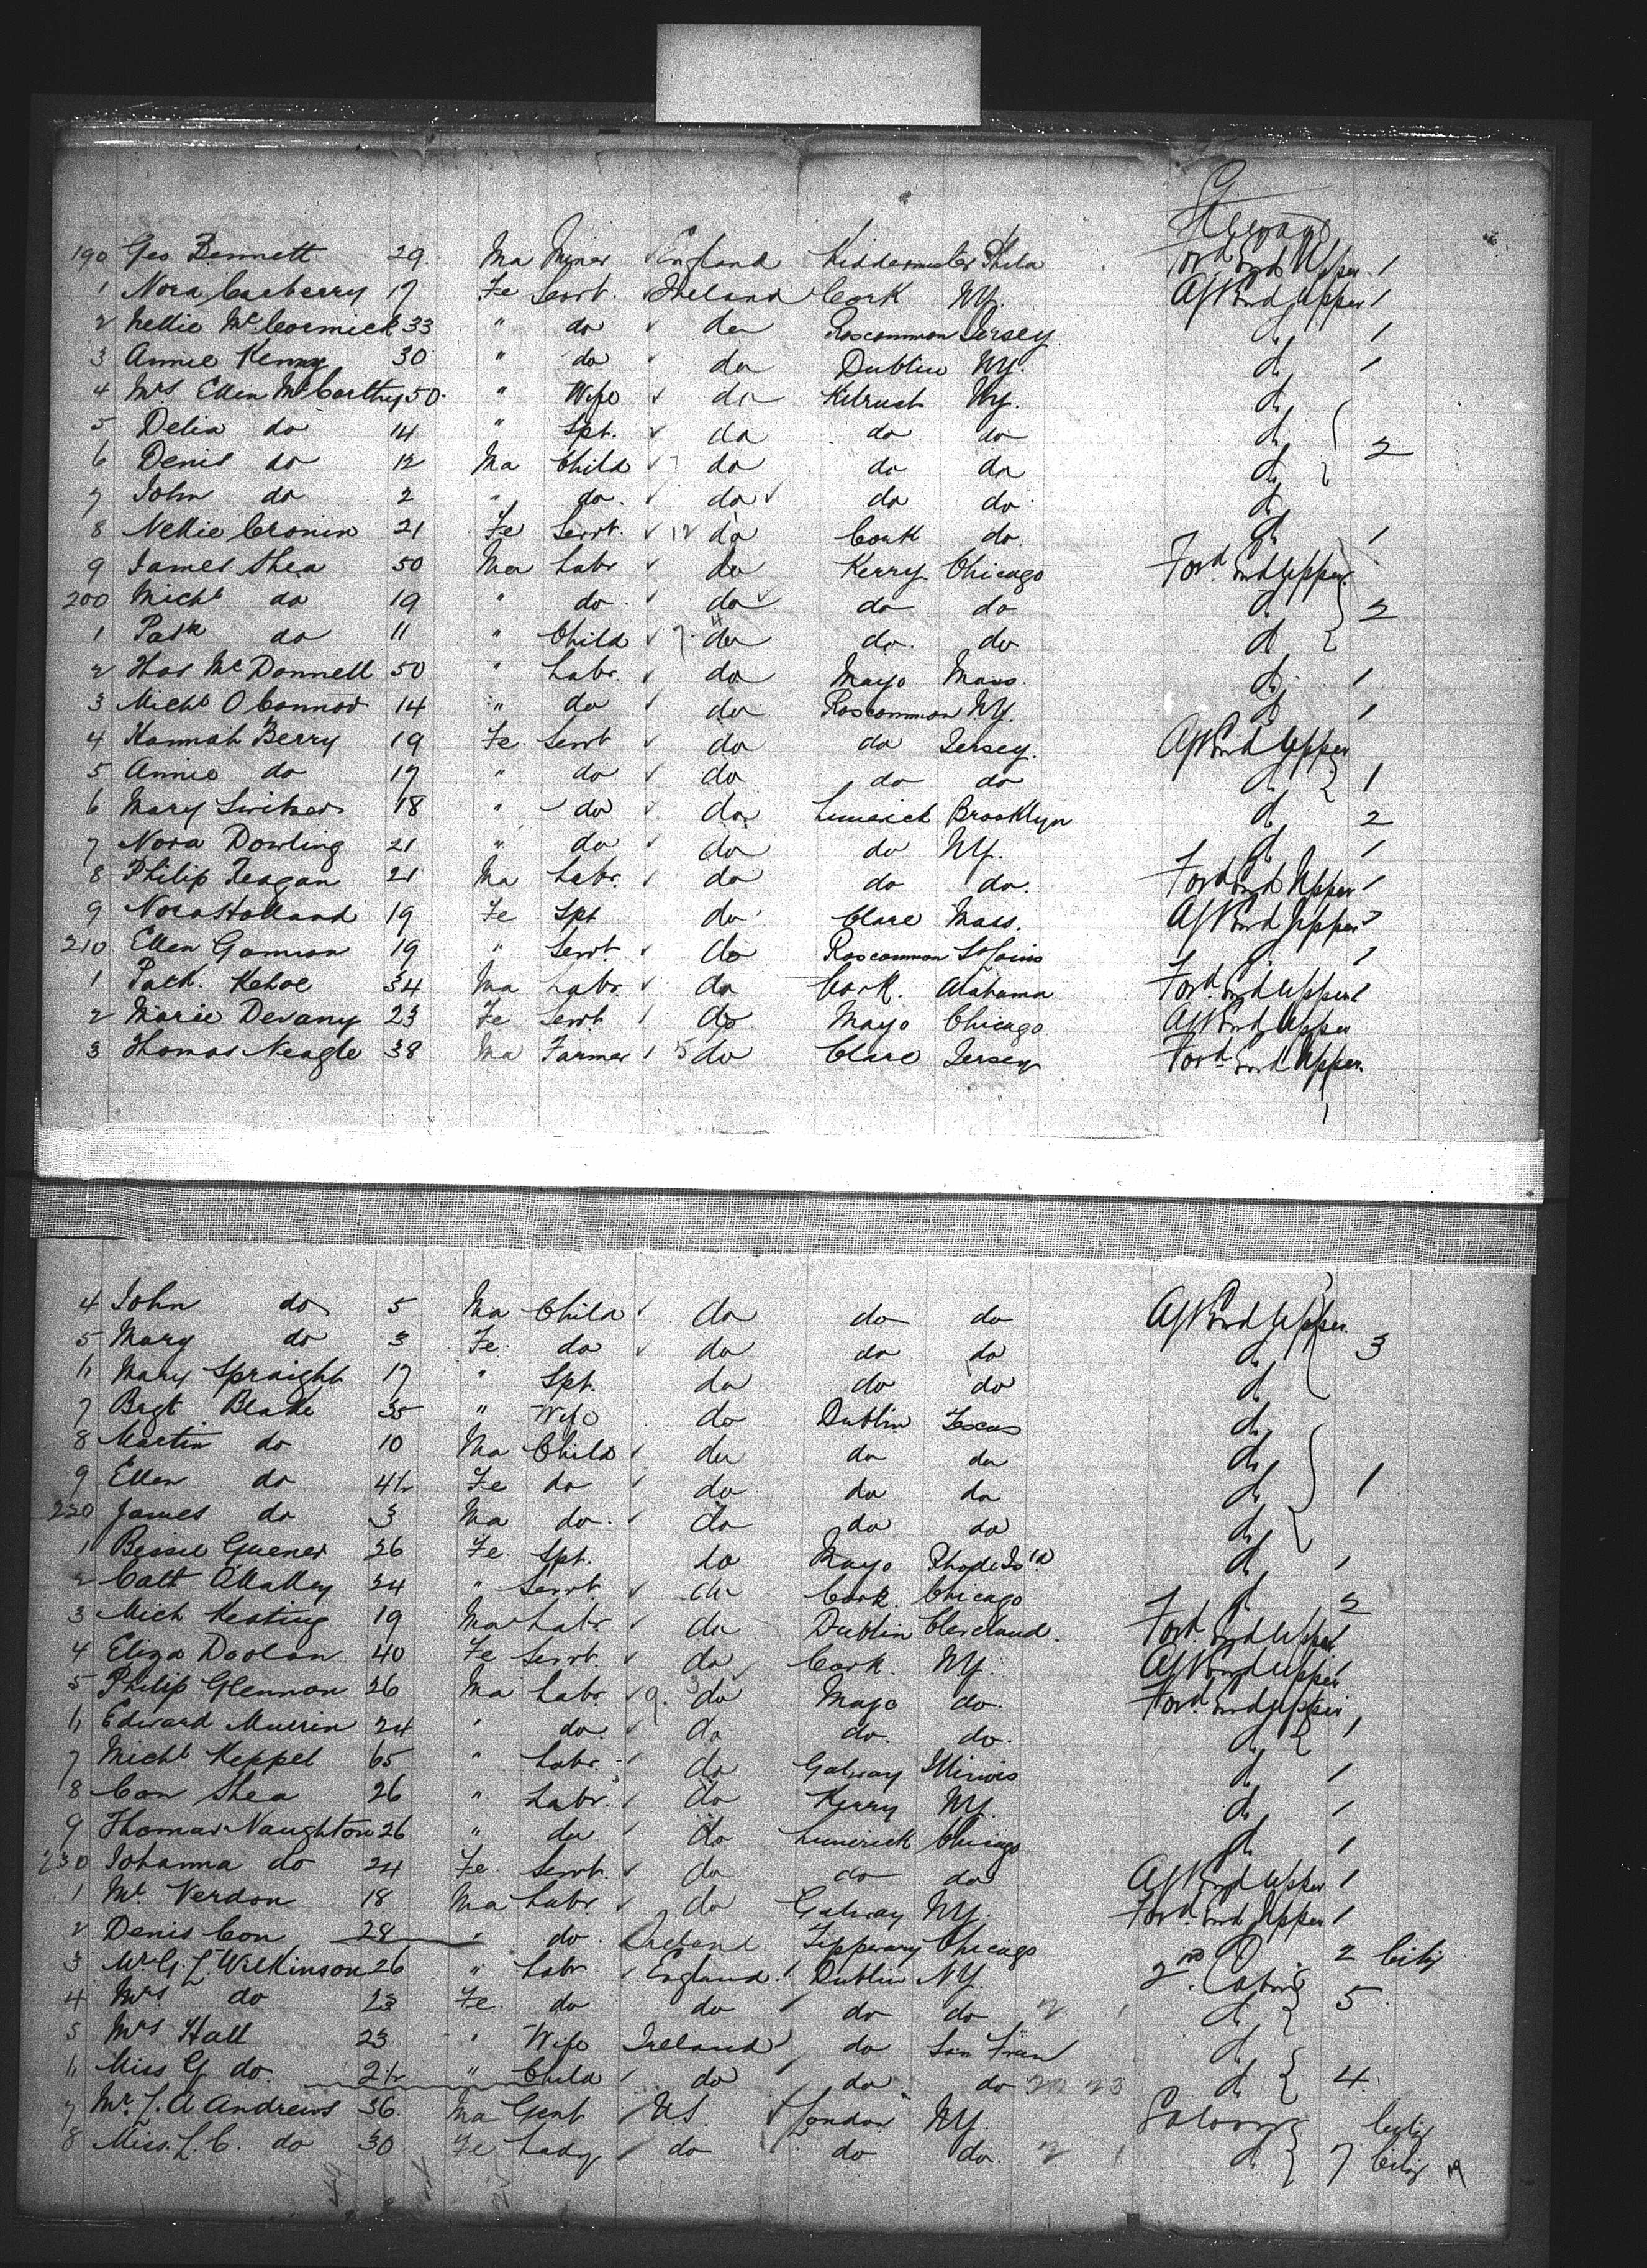 Steerage
190 Geo Bennett 29. Ma Miner England Kidderminster Phila Ford End Upper 1
1 Nora Carberry 17 Fe Servt. Ireland Cork NY. Aft End Upper 1
2 Nellie McCormick 33 " do do Roscommon Jersey do 1
3 Annie Kenny 30 " do do Dublin NY. do 1
4 Mrs Ellen McCarthy 50 " Wife do Kilrush NY. do
5 Delia do 14 " Spt. do do do do 2
6 Denis do 12 Ma Child do do do do
7 John do 2 " do. do do do do
8 Nellie Cronin 21 Fe Servt. 12 do Cork do. do 1
9 James Shea 50 Ma Labr do Kerry Chicago Ford End Upper.
200 Michl do 19 " do. do do do do 2
1 Patk do 11 " Child 7 do do. do do
2 Thos McDonnell 50 " Labr. do Mayo Mass. do 1
3 Michl OConnor 14 " do do Roscommon NY. do 1
4 Hannah Berry 19 Fe. Servt do do Jersey. Aft End Upper
5 Annie do 17 " do do do do do 1
6 Mary Switzer 18 " do do Limerick Brooklyn do 2
7 Nora Dowling 21 " do do do NY. do 1
8 Philip Feagan 21 Ma Labr. do do do. Ford End Upper 1
9 Nora Holland 19 Fe Spt do Clare Mass. Aft End Upper
210 Ellen Gannon 19 " Servt. do Roscommon St Louis do 1
1 Patk. Kehoe 34 Ma Labr. do Cork. Alabama Ford. End Upper 1
2 Marie Devany 23 Fe Servt do Mayo Chicago. Aft End Upper
3 Thomas Neagle 38 Ma Farmer 5 do Clare Jersey Ford End Upper.
1
4 John do 5 Ma Child do do do Aft End Upper.
5 Mary do 3 Fe. do do do do do 3
6 Mary Spraight 17 " Spt. do do do do
7 Bgt Blake 35 " Wife do Dublin Texas do
8 Martin do 10 Ma Child do do do do
9 Ellen do 4½ Fe do do do do do 1
220 James do 3 Ma do. do do do do
1 Bessie Guener 26 Fe. Spt. do Mayo Rhode Isld do 1
2 Cath OMalley 24 " Servt. do Cork. Chicago do 2
3 Mich Keating 19 Ma Labr. do Dublin Cleveland. Ford. End Upper 1
4 Eliza Doolan 40 Fe Servt. do Cork. NY. Aft End Upper 1
5 Philip Glennon 26 Ma Labr. 9. do Mayo do. Ford. End Upper
6 Edward Murrin 24 " do. do do. do. do 1
7 Michl Keppel 65 " Labr. do Galway Illinois do 1
8 Con Shea 26 " Labr. do Kerry NY. do 1
9 Thomas Naughton 26 " do do Limerick Chicago do 1
230 Johanna do 24 Fe. Servt. do do do Aft End Upper 1
1 Ml Verdon 18 Ma Labr. do Galway NY. Ford. End Upper 1
2 Denis Con 28 " do. Ireland Tipperary Chicago 2 City
3 Mr G. L Wilkinson 26 " Labr England. Dublin NY. 2nd. Cabin
4 Mrs do 23 Fe. do do do do do 5.
5 Mrs Hall 23 " Wife Ireland do San Fran do
6 Miss G do. 2½ " Child do do do 22 23 do 4.
7 Mr. J. A Andrews 36. Ma Gent U.S. London NY. Saloon City
8 Miss. L. C. do 30 Fe Lady do do do. do 7 City